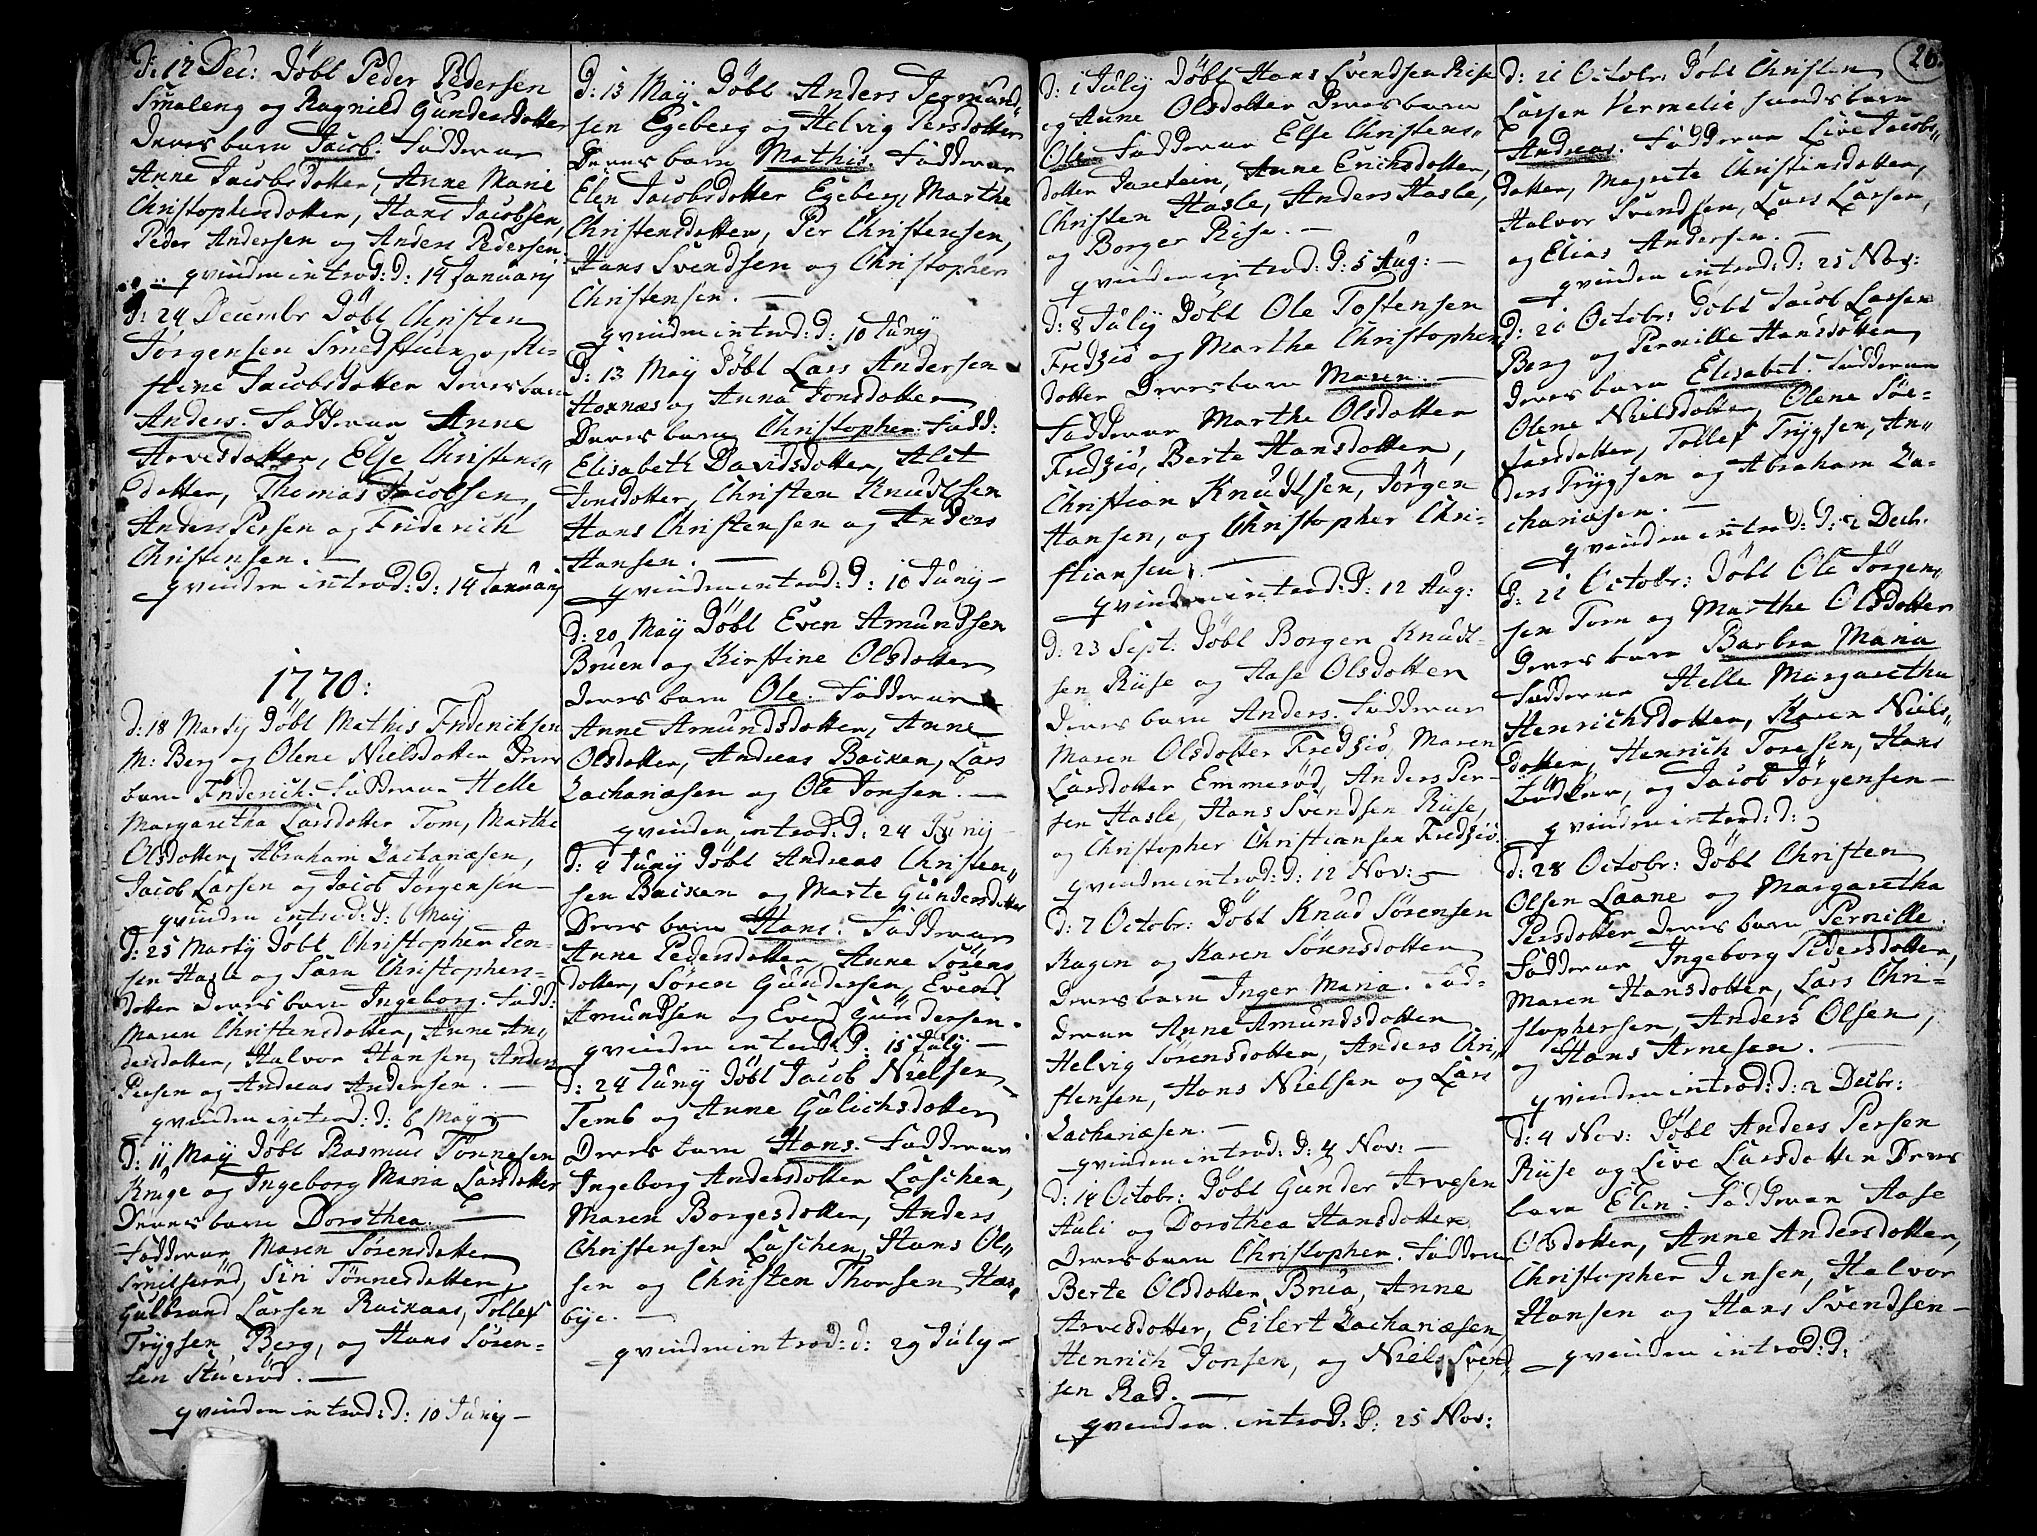 D: 17 Dec: Döbt Peder Pedersen
Smaleng og Ragnild Gundersdotter
Deres barn Jacob. Fadderne
Anne Jacobsdotter, Anne Marie
Christophersdotter, Hans Jacobsen,
Peder Andersen og Anders Pedersen.
qvinden introd: d: 14 January
D: 24 Decembr Döbt Christen
Jörgensen Smedstuen og Ki-
stine Jacobsdotter Deres barn
Anders. Fadderne Anne
Arvesdotter, Else Christens"
dotter, Thomas Jacobsen,
Anders Persen og Friderich
Christensen. —
qvinden introd: d: 14 January
1770:
D: 18 Martÿ Döbt Mathis Friderichsen
M: Berg og Olene Nielsdotter Deres
barn Friderich. Fadderne Helle
Margaretha Larsdotter Tom, Marthe
Olsdotter, Abraham Zachariæsen,
Jacob Larsen og Jacob Jörgensen —
qvinden introd: d: 6 Maÿ
D: 25 Martÿ Döbt Christopher Jen-
sen Hasle og Sara Christophers-
dotter Deres barn Ingeborg. Fadd:
Maren Christensdotter, Anne An"
dersdotter, Halvor Hansen, Anders
Persen og Andreas Andersen. —
qvinden introd: d: 6 Maÿ —
D: 11 Maÿ Döbt Rasmus Tönnesen
Kruge og Ingeborg Maria Larsdotter
Deres barn Dorothea. —
Fadderne Maren Sörensdotter
Smilseröd, Siri Tönnesdotter,
Gulbrand Larsen Rackaas, Tollef
Trÿgsen Berg, og Hans Sören-
sen Stueröd. —
qvinden introd: d: 10 Junÿ —
D: 13 Maÿ Döbt Anders Jermund-
sen Egeberg og Helvig Persdotter
Deres barn Mathis. Fadderne
Elen Jacobsdotter Egeberg, Marthe
Christensdotter, Per Christensen,
Hans Svendsen og Christopher
Christensen. —
qvinden introd: d: 10 Junÿ
D: 13 Maÿ Döbt Lars Andersen
Hoxnæs og Anna Jonsdotter
Deres barn Christopher. Fadd:
Elisabeth Davidsdotter, Alet
Jonsdotter, Christen Knudtsen
Hans Christensen og Anders
Hansen. —
qvinden introd: d: 10 Junÿ —
D: 20 Maÿ Döbt Even Amundsen
Bruen og Kirstine Olsdotter
Deres barn Ole. Fadderne
Anne Amundsdotter, Anne
Olsdotter, Andreas Backen, Lars
Zachariæsen og Ole Jonsen. —
qvinden introd: d: 24 Junÿ —
D: 4 Junÿ Döbt Andreas Christen"
sen Backen og Marte Gundersdotter
Deres barn Hans. Fadderne
Anne Pedersdotter, Anne Sörens
dotter, Sören Gundersen, Evend
Amundsen og Evend Gundersen.
qvinden introd: d: 15 Julÿ —
D: 24 Junÿ Döbt Jacob Nielsen
Temb og Anne Gulichsdotter
Deres barn Hans. Fadderne
Ingeborg Andersdotter Laschen,
Maren Borgesdotter, Anders
Christensen Laschen, Hans Ol"
sen og Christen Thorsen Hæs"
bÿe. —
qvinden introd: d: 29 Julÿ —
26.
D: 1 Julÿ Döbt Hans Svendsen Rise
og Aune Olsdotter Deres barn
Ole Fadderne Else Christens"
dotter Jaretein, Anne Erichsdotter,
Christen Hasle, Anders Hasle,
og Borger Rise. —
qvinden introd: d: 5 Aug: —
D: 8 Julÿ Döbt Ole Tostensen
Fredsiö og Marthe Christophers
dotter Deres barn Maren. —
Fadderne Marthe Olsdotter
Fredsiö, Berte Hansdotter,
Christian Knudtsen, Jörgen
Hansen, og Christopher Chri-
stiansen. —
qvinden introd: d: 12 Aug:
D: 23 Sept: Döbt Borger Knudt-
sen Riise og Aase Olsdotter
Deres barn Anders. Fadderne
Maren Olsdotter Fredsiö, Maren
Larsdotter Emmeröd, Anders Per-
sen Hasle, Hans Svendsen Riise,
og Christopher Christiansen Fredsiö.
qvinden introd: d: 12 Nov: —
D: 7 Octobr: Döbt Knud Sörensen
Ragen og Karen Sörensdotter
Deres barn Inger Maria. Fad-
derne Anne Amundsdotter
Helvig Sörensdotter, Anders Chri"
stensen, Hans Nielsen og Lars
Zachariæsen. —
qvinden introd: d: 4 Nov: —
D: 14 Octobr: Döbt Gunder Arvesen
Huli og Dorothea Hansdotter
Deres barn Christopher. Fadderne
Berte Olsdotter Brua, Anne
Arvesdotter, Eilert Zachariæsen,
Henrich Jonsen, og Niels Svend
sen Rød. —
qvinden introd: d: 25 Nov:
D: 21 Octobr: Döbt Christen
Larsen Vermelie hands barn
Andreas. Fadderne Live Jacobs"
dotter, Magrete Christensdotter,
Halvor Svendsen, Lars Larsen,
og Elias Andersen. —
qvinden introd: d: 25 Nov:
D: 20 Octobr: Döbt Jacob Larsen
Berg og Pernille Hansdotter
Deres barn Elisabet. Fadderne
Olene Nielsdotter, Olene Söf-
farsdotter, Tollef Trÿgsen, An"
ders Trÿgsen og Abraham Za-
chariæsen. —
qvinden introd: d: 2 Decb.
D: 21 Octobr: Döbt Ole Jörgen-
sen Tom og Marthe Olsdotter
Deres barn Barbra Maria
Fadderne Helle Margaretha
Henrichsdotter, Karen Niels"
dotter, Henrich Toresen, Hans
Bödker, og Jacob Jörgensen —
qvinden introd: d:
D: 28 Octobr: Döbt Christen
Olsen Laane og Margaretha
Persdotter Deres barn Pernille.
Fadderne Ingeborg Pedersdotter,
Maren Hansdotter, Lars Chri-
stophersen, Anders Olsen,
og Hans Arnesen. —
qvinden introd: d: 2 Decbr:
D: 4 Nov: Döbt Anders Persen
Riise og Live Larsdotter Deres
barn Elen. Fadderne Aase
Olsdotter, Anne Andersdotter,
Christopher Jensen, Halvor
Hansen og Hans Svendsen —
qvinden introd: d: